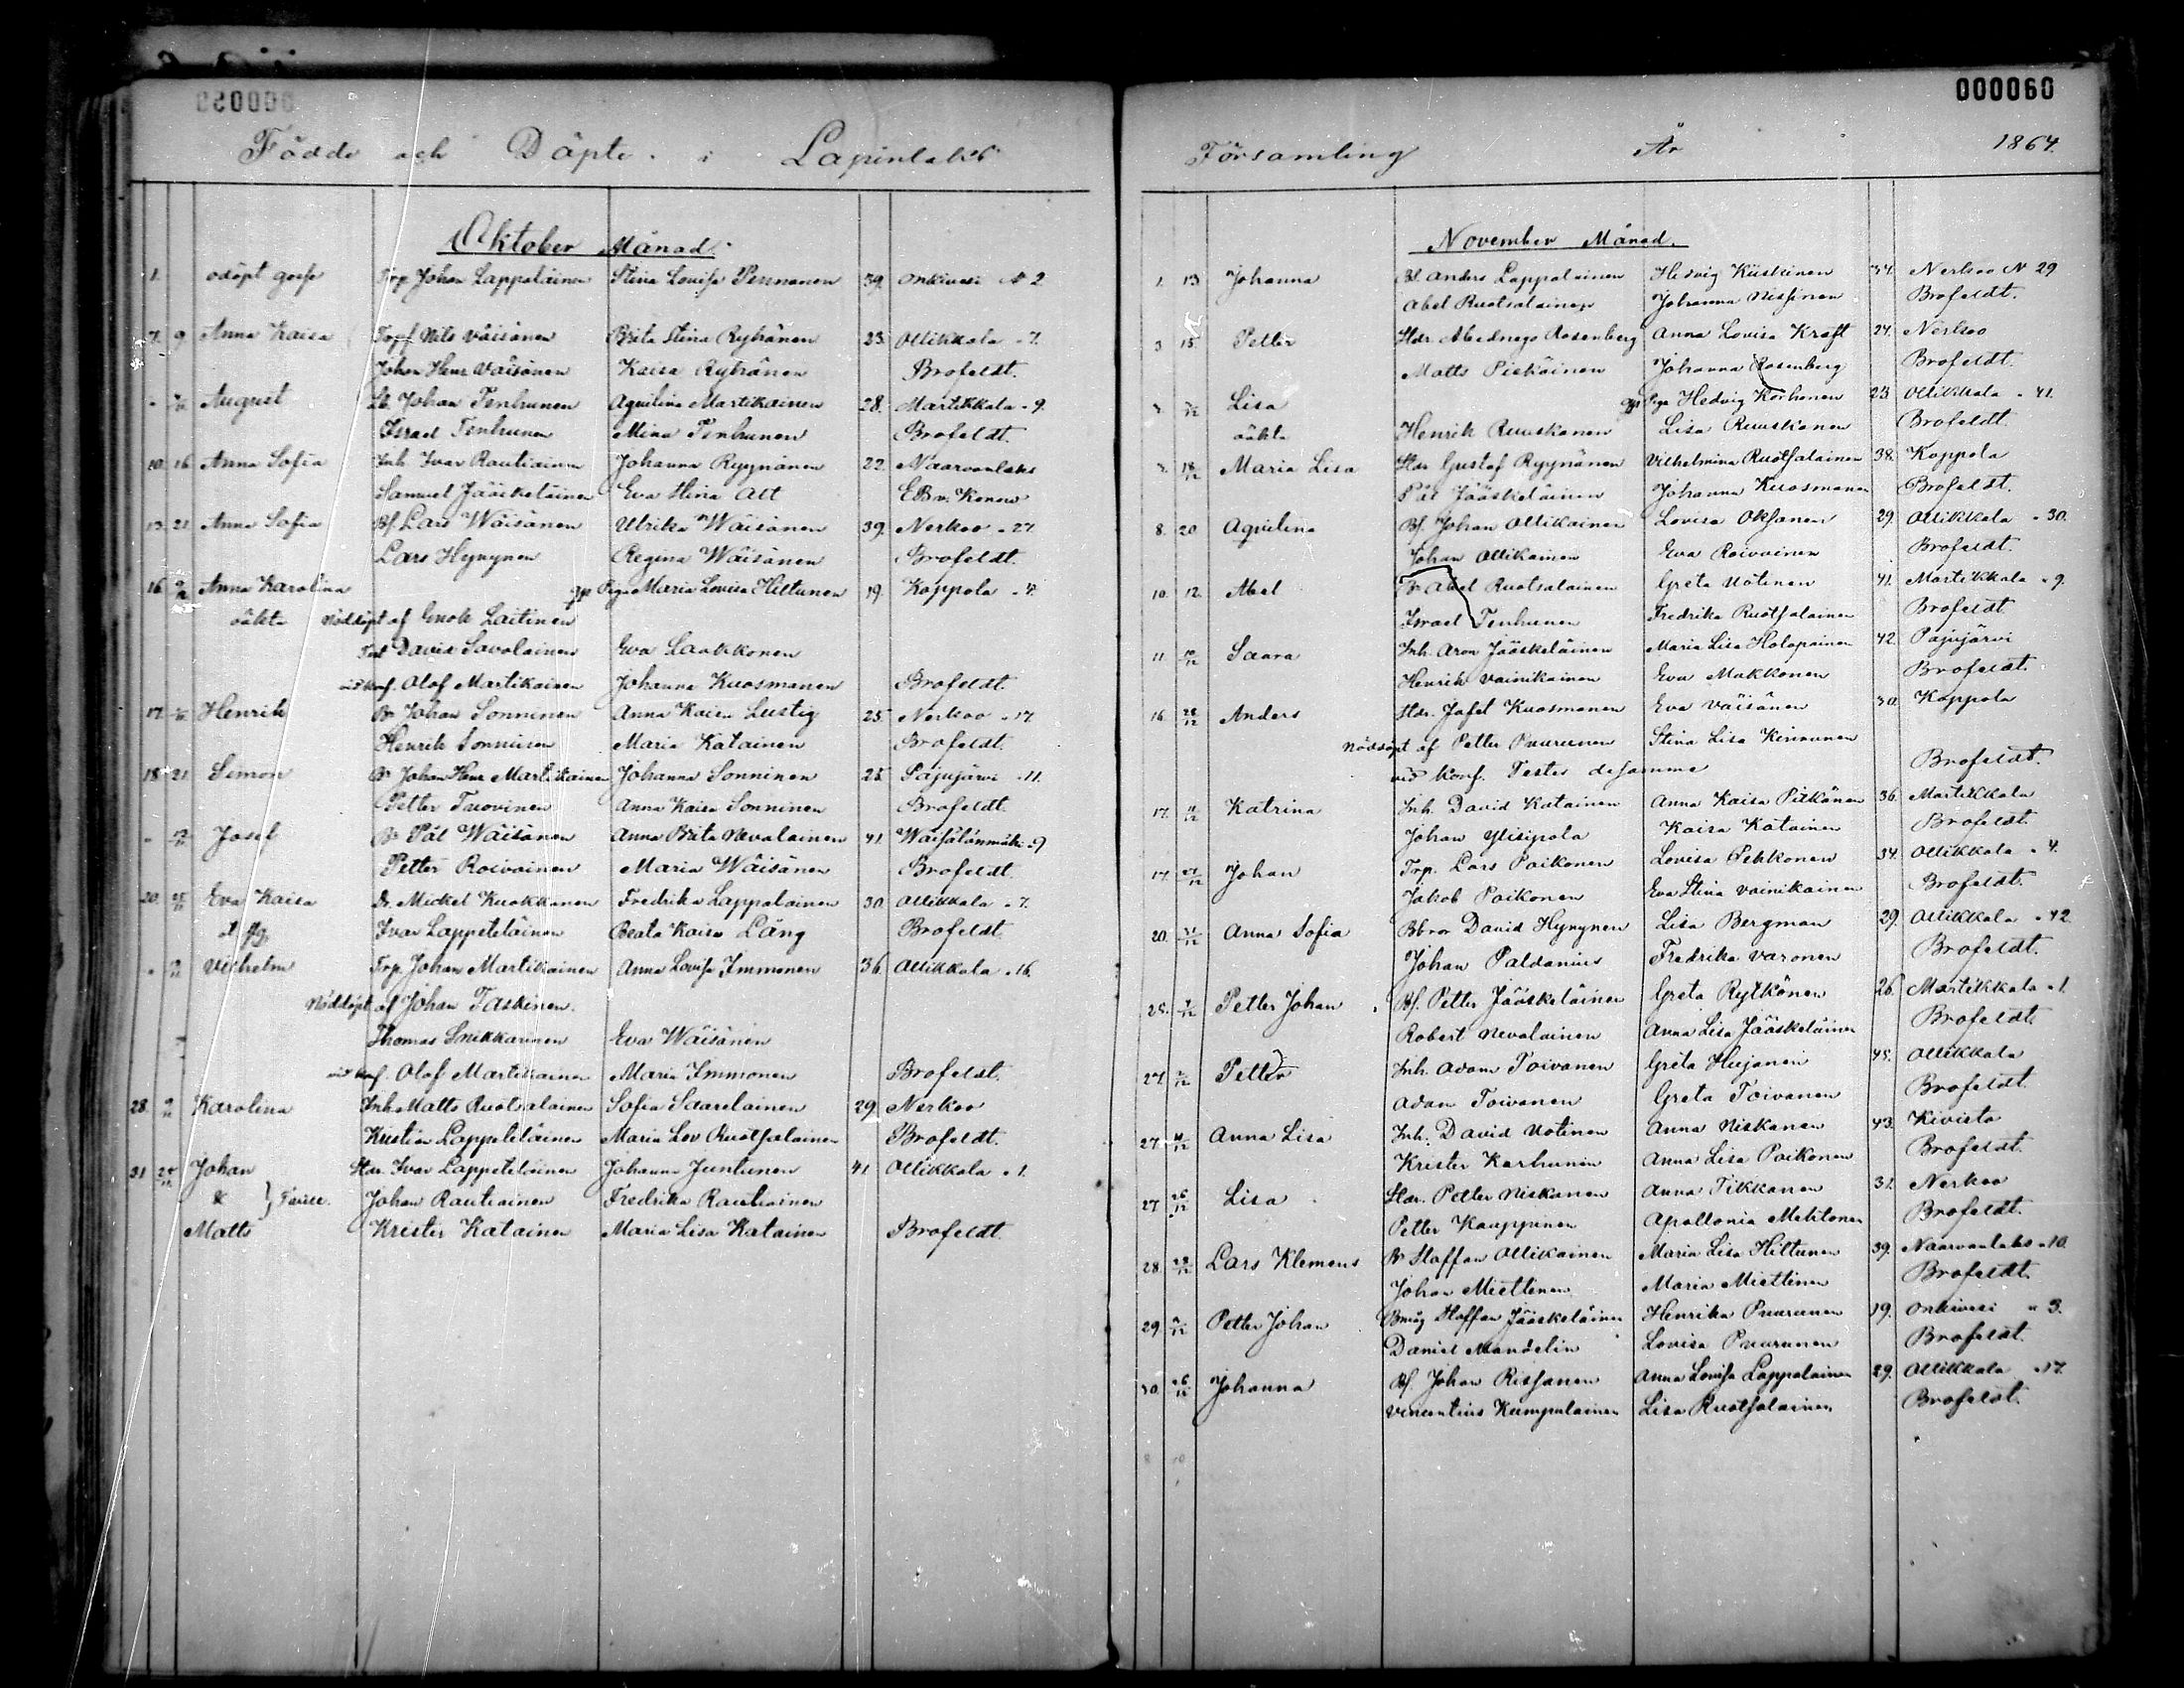 000060
Födde och Döpte i Lapinlaks
Oktober Månad.
1. odöpt gosse Torp. Johan Lappalainen Stina Lovisa Pennanen 39. Onkivesi N 2
7. 9 Anna Kaisa Nils Väisänen Brita Stina Ryhänen 23. Ollikkala " 7.
Johan Henr Väisänen Kaisa Ryhänen Brofeldt.
" August Johan Tenhunen Aqvilina Martikainen 28. Martikkala " 9.
Israel Tenhunen Mina Tenhunen Brofeldt.
10. 16 Anna Sofia Inh. Ivar Rautiainen Johanna Ryynänen 22. Naarvanlaks
Samuel Jääskeläinen Eva Stina Alt
13. 21. Anna Sofia Bf. Lars Wäisänen Ulrika Wäisänen 39. Nerkoo " 27.
Lars Hynynen Regina Wäisänen Brofeldt.
16. Anna Karolina Piga Maria Lovisa Hiltunen 19. Koppola " 4.
oäkta Nöddöpt af Enok Laitinen
David Savolainen Eva Laakkonen
vid konf. Olof Martikainen Johanna Kuosmanen Brofeldt.
17. Henrik Br Johan Sonninen Anna Kaisa Lustig 25. Nerkoo " 17
Henrik Sonninen Maria Katainen Brofeldt.
18. 21. Simon Br Johan Henr Martikainen Johanna Sonninen 25. Pajujärvi " 11.
Petter Tuovinen Anna Kaisa Sonninen Brofeldt.
" Josef Br Pål Wäisänen Anna Brita Nevalainen 41. Waisälänmäki " 9
Petter Roivainen Maria Wäisänen Brofeldt.
20. Eva Kaisa Dr. Mickel Kuokkanen Fredrika Lappalainen 30. Ollikkala " 7.
Ivar Lappeteläinen Beata Kaisa Läng Brofeldt.
" Vilhelm Trp. Johan Martikainen Anna Lovisa Immonen 36. Ollikkala " 16.
Nöddöpt af Johan Taskinen.
Thomas Snikkarinen Eva Wäisänen
vid konf. Olof Martikainen Maria Immonen Brofeldt.
28. Karolina Inh. Matts Ruotsalainen Sofia Saarelainen 29. Nerkoo
Kristian Lappeteläinen Maria Lov Ruotsalainen Brofeldt.
31. Johan Ivar Lappeteläinen Johanna Juntunen 41. Ollikkala " 1.
& Johan Rautiainen Fredrika Rautiainen
Matts Krister Katainen Maria Lisa Katainen Brofeldt.
Församling År 1864.
November Månad.
1. 13 Johanna Bf. Anders Lappalainen Hedvig Kiiskinen 34. Nerkoo N 29
Abel Ruotsalainen Johanna Nissinen Brofeldt.
3. 15. Petter Stdr. Abednego Rosenberg Anna Lovisa Kraft 24. Nerkoo
Matts Piekäinen Johanna Rosenberg Brofeldt.
Lisa Piga Hedvig Korhonen 23. Ollikkala " 41.
oäkta Henrik Ruuskanen Lisa Ruuskanen Brofeldt.
18/12 Maria Lisa Stdr Gustaf Ryynänen Vilhelmina Ruotsalainen 38. Koppola
Pål Jääskeläinen Johanna Kuosmanen Brofeldt.
8. 20 Aqvilina Bf. Johan Ollikainen Lovisa Oksanen 29. Ollikkala " 30.
Johan Ollikainen Eva Roivainen Brofeldt.
10. 12. Abel Br Abel Ruotsalainen Greta Uotinen 41. Martikkala " 9.
Israel Tenhunen Fredrika Ruotsalainen Brofeldt
11 Saara Inh. Aron Jääskeläinen Maria Lisa Holopainen 42. Pajujärvi
Henrik Vainikainen Eva Makkonen Brofeldt.
16. 26/12 Anders Stdr. Jafet Kuosmanen Eva Väisänen 30. Koppola
Nöddöpt af Petter Puurunen Stina Lisa Kinnunen
vid konf. Testes desamme Brofeldt.
17. Katrina Inh. David Katainen Anna Kaisa Pitkänen 36. Martikkala
Johan Ylisipola Kaisa Katainen Brofeldt.
17. 27/12 Johan Torp. Lars Poikonen Lovisa Pekkonen 34. Ollikkala " 4.
Jakob Poikonen Eva Stina Vainikainen Brofeldt.
20. Anna Sofia David Hynynen Lisa Bergman 29. Ollikkala " 42
Johan Paldanius Fredrika Varonen Brofeldt.
25. Petter Johan Bf. Petter Jääskeläinen Greta Rytkönen 26. Martikkala " 1.
Robert Nevalainen Anna Lisa Jääskeläinen Brofeldt.
27. Petter Inh. Adam Toivanen Greta Hujanen 45. Ollikkala
Adam Toivanen Greta Toivanen Brofeldt.
27. Anna Lisa Inh. David Uotinen Anna Niskanen 43. Kivistö
Krister Karhunen Anna Lisa Poikonen Brofeldt.
27 26/12 Lisa Stdr. Petter Niskanen Anna Tikkanen 31. Nerkoo
Petter Kauppinen Apollonia Mehtonen Brofeldt.
28. Lars Klemens Br Staffan Ollikainen Maria Lisa Hiltunen 39. Naarvanlaks " 10.
Johan Miettinen Maria Miettinen Brofeldt.
29. Petter Johan Bmåg Staffan Jääskeläinen Henrika Puurunen 19. Onkivesi " 3.
Daniel Mandelin Lovisa Puurunen Brofeldt.
30. 26/12 Johanna Bf. Johan Rissanen Anna Lovisa Lappalainen 29. Ollikkala " 17.
Vincentius Kumpulainen Lisa Ruotsalainen Brofeldt.